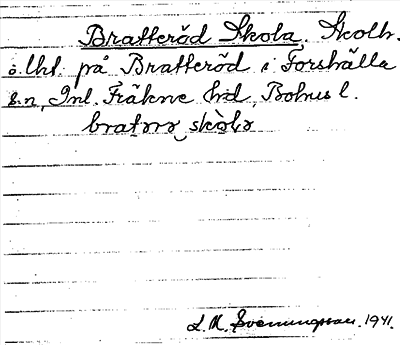 Bratteröd Skola. Skolh.
o. lht. på Bratteröd i Forshälla
s:n, Inl. Fräkne hd, Bohus l.
bratǝrø skòlɒ
L. M. Svenungsson. 1941.